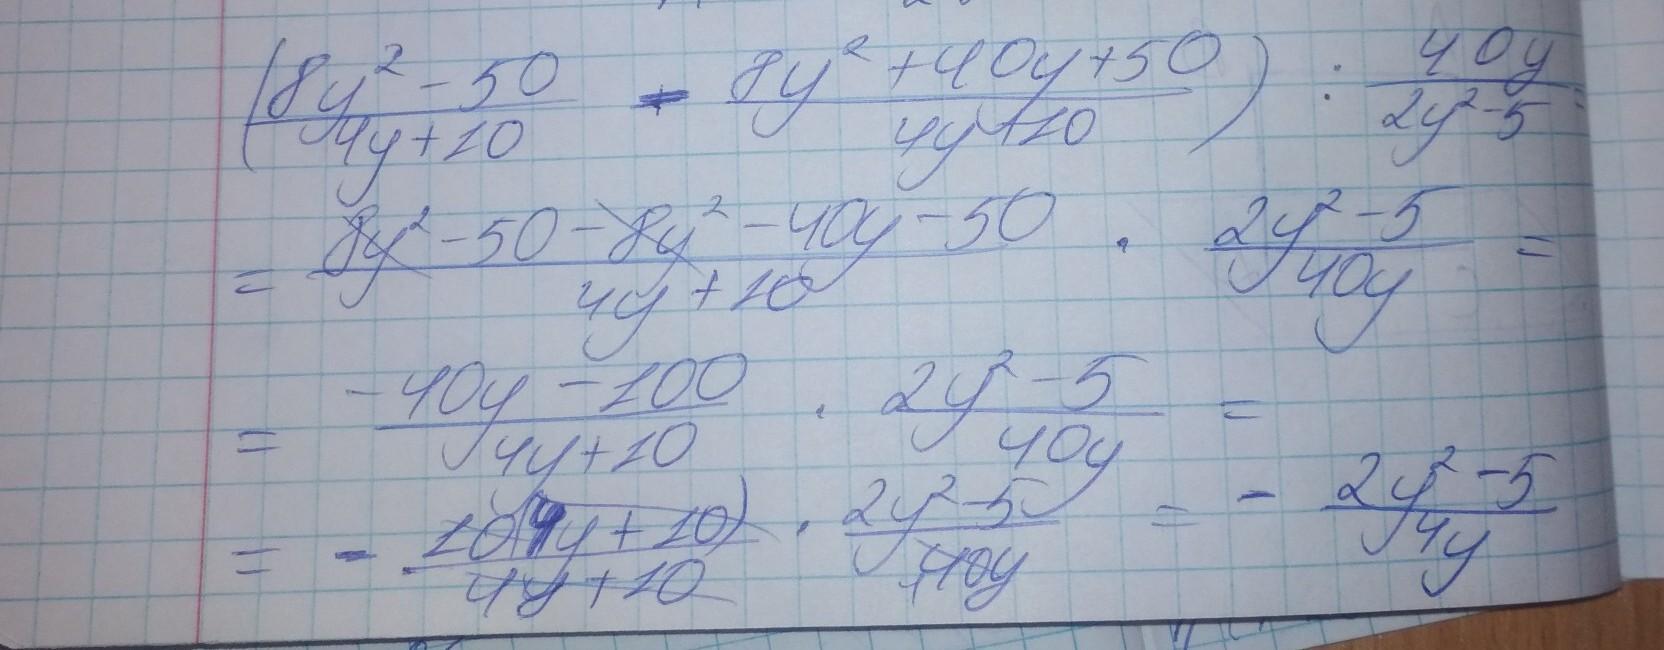 (8y² - 50 / 4y + 10 - 8y² + 40y + 50 / 4y + 10) : 40y / 2y² - 5 =
= 8y² - 50 - 8y² - 40y - 50 / 4y + 10 · 2y² - 5 / 40y =
= -40y - 100 / 4y + 10 · 2y² - 5 / 40y =
= - 10(4y + 10) / 4y + 10 · 2y² - 5 / 40y = - 2y² - 5 / 4y